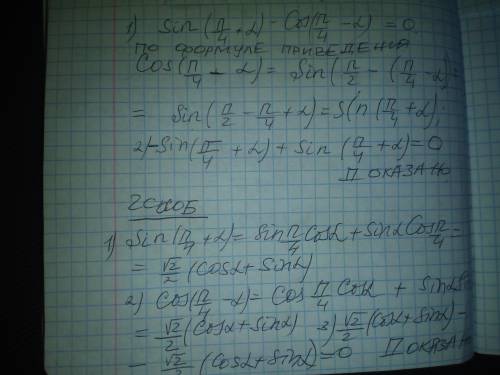 1) Sin(π/4 + α) - Cos(π/4 - α) = 0
ПО ФОРМУЛЕ ПРИВЕДЕНИЯ
Cos(π/4 - α) = Sin(π/2 - (π/4 - α) =
= Sin(π/2 - π/4 + α) = Sin(π/4 + α);
2) -Sin(π/4 + α) + Sin(π/4 + α) = 0
ДОКАЗАНО
2СПОСОБ
1) Sin(π/4 + α) = Sin π/4 Cosα + Sinα Cos π/4 =
= √2/2 (Cosα + Sinα)
2) Cos(π/4 - α) = Cos π/4 Cosα + Sinα
= √2/2 (Cosα + Sinα) 3) √2/2 (Cosα + Sinα) -
- √2/2 (Cosα + Sinα) = 0 ДОКАЗАНО